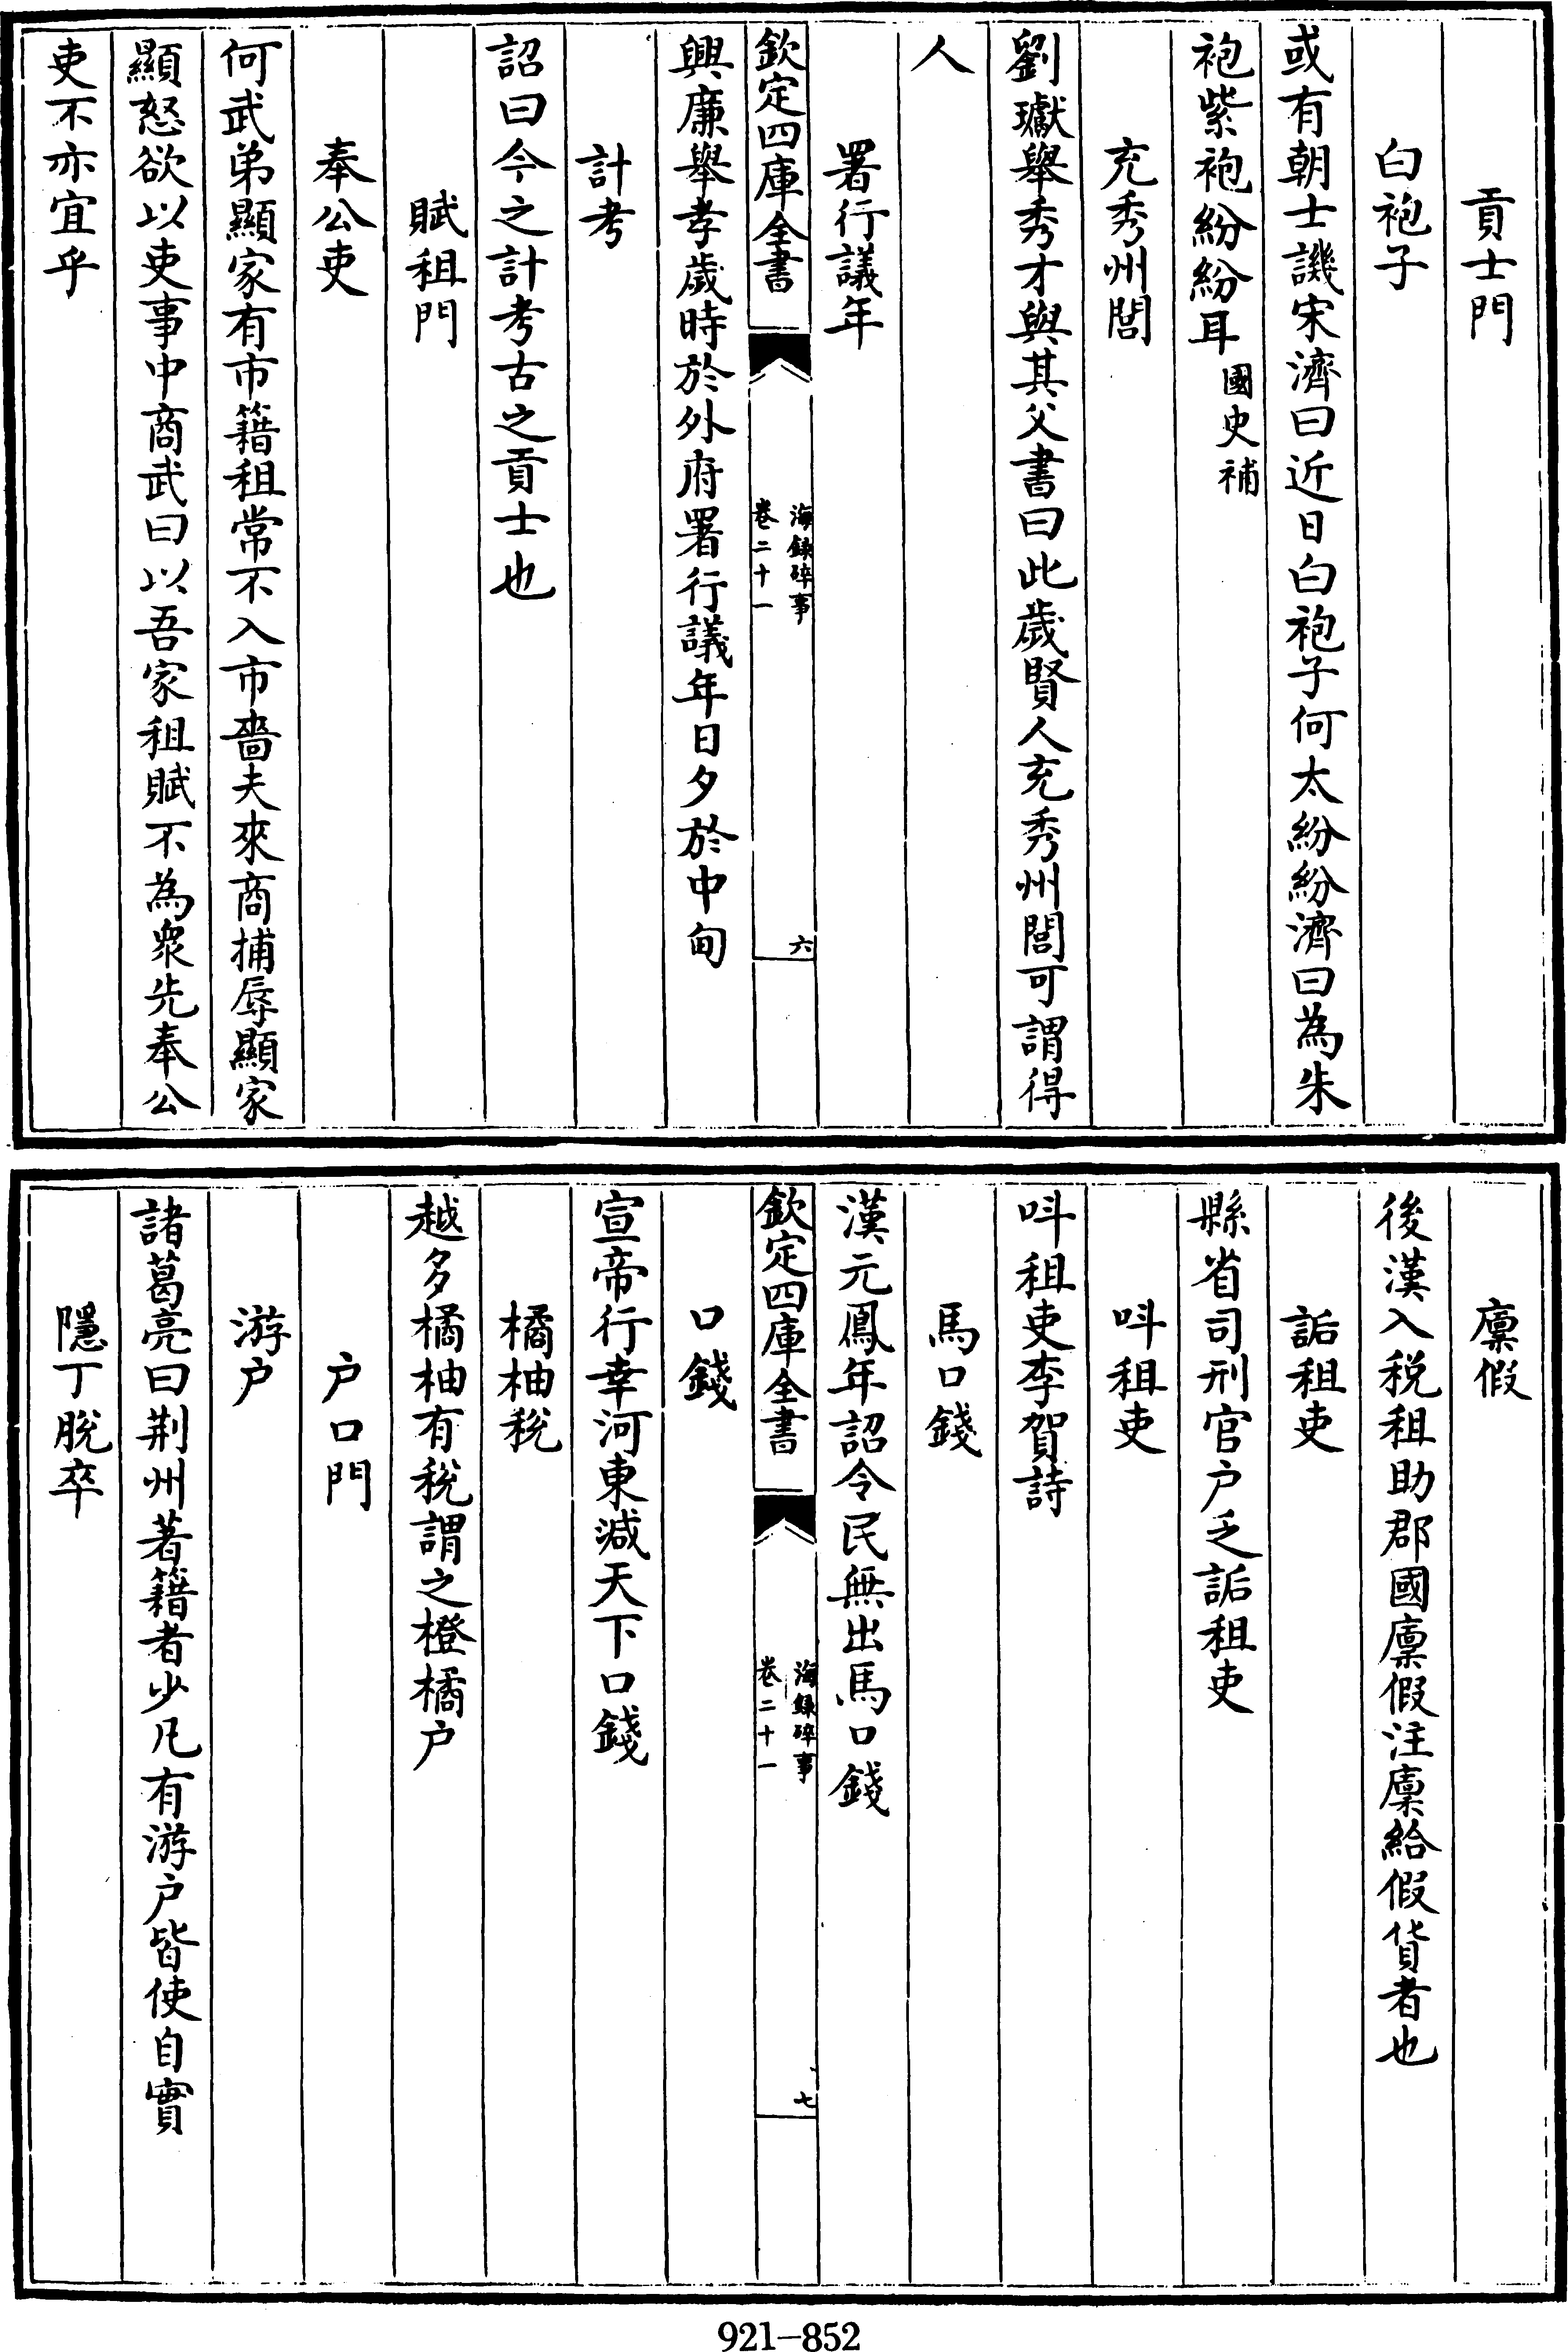 貢士門
白袍子
或有朝士譏宋濟曰近日白袍子何太紛紛濟曰為朱
袍紫袍紛紛耳國史補
充秀州閭
劉瓛舉秀才與其父書曰此歲賢人充秀州閭可謂得
人
署行議年
欽定四庫全書
海録碎事
卷二十一
六
興廉舉孝歲時於外府署行議年日夕於中甸
計考
詔曰今之計考古之貢士也
賦租門
奉公吏
何武弟顯家有市籍租常不入市嗇夫來商捕辱顯家
顯怒欲以吏事中商武曰以吾家租賦不為衆先奉公
吏不亦宜乎
廩假
後漢入税租助郡國廩假注廩給假貨者也
詬租吏
縣省司刑官户乏詬租吏
呌租吏
呌租吏李賀詩
馬口錢
漢元鳳年詔令民無出馬口錢
欽定四庫全書
海録碎事
卷二十一
七
口錢
宣帝行幸河東減天下口錢
橘柚税
越多橘柚有税謂之橙橘户
户口門
游户
諸葛亮曰荆州著籍者少凡有游户皆使自實
隱丁脫卒
921-852